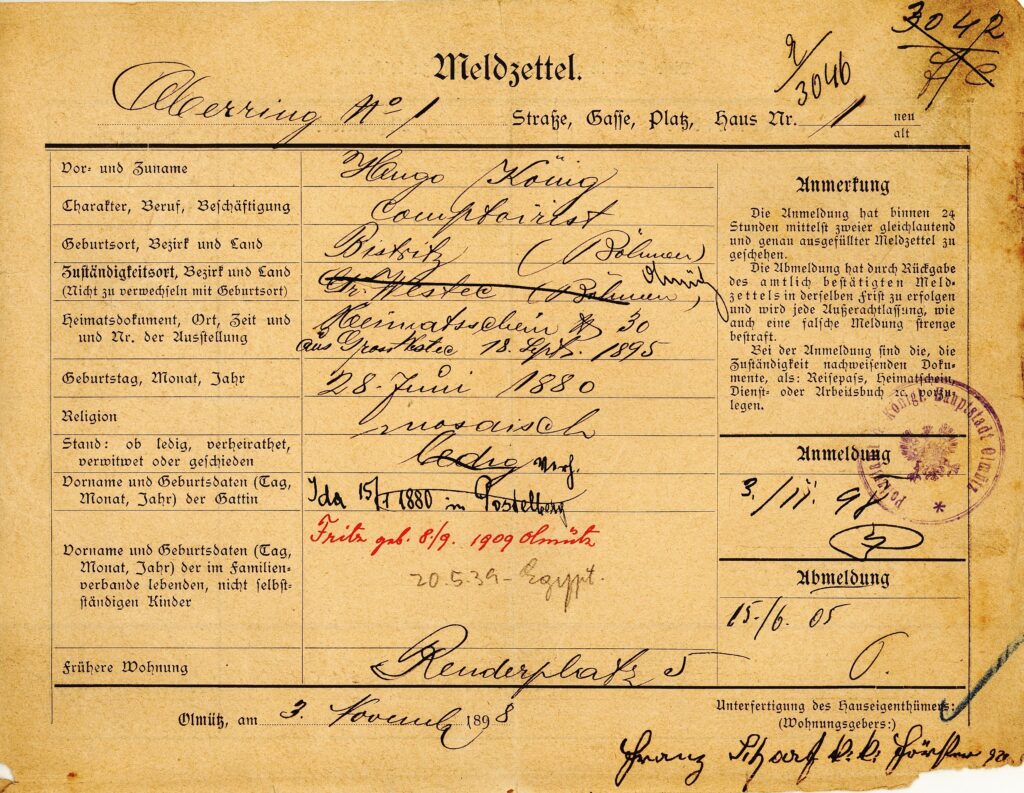 3042
2/3046
Meldzettel.
Oberring No 1 Straße, Gasse, Platz, Haus Nr. 1 neu
alt
Vor- und Zuname Hugo König
Charakter, Beruf, Beschäftigung Comptoirist
Geburtsort, Bezirk und Land Bistritz (Böhmen)
Zuständigkeitsort, Bezirk und Land
(Nicht zu verwechseln mit Geburtsort) Gr. Wostec (Böhmen) Olmütz
Heimatsdokument, Ort, Zeit und Heimatsschein № 30
und Nr. der Ausstellung aus Grosswostec 18. Sept. 1895
Geburtstag, Monat, Jahr 28. Juni 1880
Religion mosaisch
Stand: ob ledig, verheirathet,
verwitwet oder geschieden ledig verh.
Vorname und Geburtsdaten (Tag,
Monat, Jahr) der Gattin Ida 15/1 1880 in Postelberg
Fritz geb. 8/9. 1909 Olmütz
Vorname und Geburtsdaten (Tag,
Monat, Jahr) der im Familien-
verbande lebenden, nicht selbst-
ständigen Kinder
20.5.39 - Egypt.
Frühere Wohnung 5
Anmerkung
Die Anmeldung hat binnen 24
Stunden mittelst zweier gleichlautend
und genau ausgefüllter Meldzettel zu
geschehen.
Die Abmeldung hat durch Rückgabe
des amtlich bestätigten Meld-
zettels in derselben Frist zu erfolgen
und wird jede Außerachtlassung, wie
auch eine falsche Meldung strenge
bestraft.
Bei der Anmeldung sind die, die
Zuständigkeit nachweisenden Doku-
mente, als: Reisepaß, Heimatschein,
Dienst- oder Arbeitsbuch ꝛc. vorzu-
legen.
Königl. Hauptstadt Olmütz
Anmeldung
3./11. 98
Abmeldung
15./6. 05
Olmütz, am 3. November 1898
Unterfertigung des Hauseigenthümers:
(Wohnungsgebers:)
Franz Scharf k. k. Förster